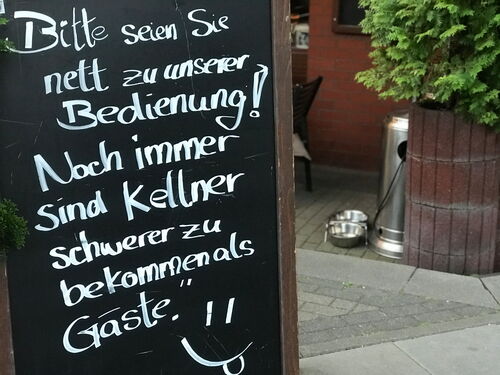 Bitte seien Sie
nett zu unserer
Bedienung!
Noch immer
sind Kellner
schwerer zu
bekommen als
Gäste."